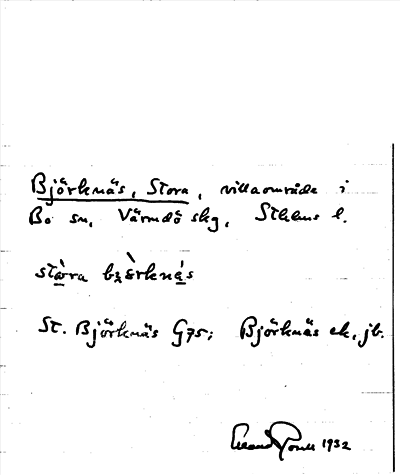 Björknäs, Stora, villaområde i
Bo sn, Värmdö skg, Sthlms l.
St. Björknäs G75; Björknäs ek, jb.
1932